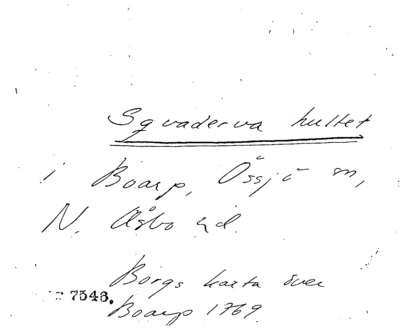 Sqvaderva hultet
i Boarp, Össjö sn,
N. Åsbo hd.
Borgs karta över
7546. Boarp 1769.